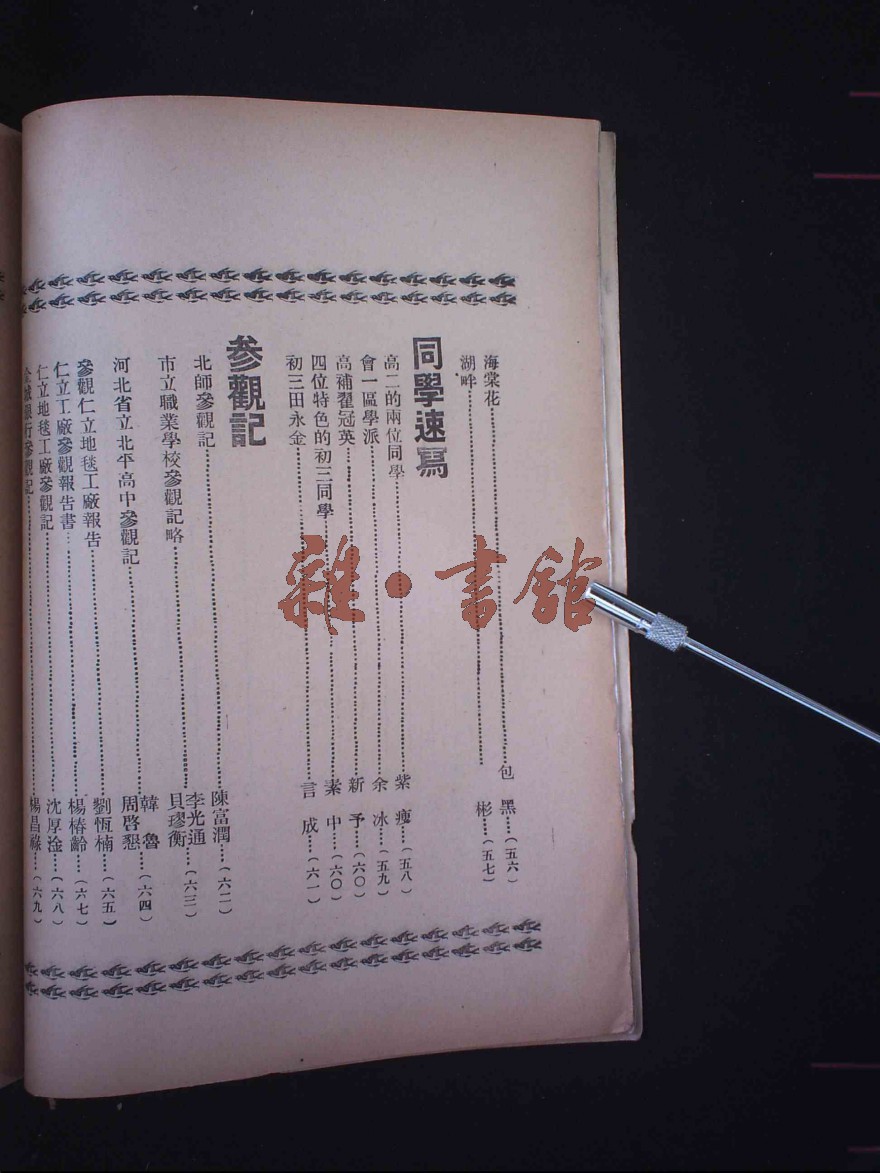 海棠花……包黑……(五六)
湖畔……彬……(五七)
同學速寫
高二的兩位同學……紫瘦……(五八)
會一區學派……余冰……(五九)
高補翟冠英……新予……(六〇)
四位特色的初三同學……素中……(六〇)
初三田永金……言成……(六一)
參觀記
北師參觀記……陳富潤……(六二)
市立職業學校參觀記略……李光通 貝璆衡……(六三)
河北省立北平高中參觀記……韓魯 周啓懇……(六四)
參觀仁立地毯工廠報告……劉恆楠……(六五)
仁立工廠參觀報告書……楊椿齡……(六七)
仁立地毯工廠參觀記……沈厚淦……(六八)
金城銀行參觀記……楊昌祿……(六九)
雜·書館